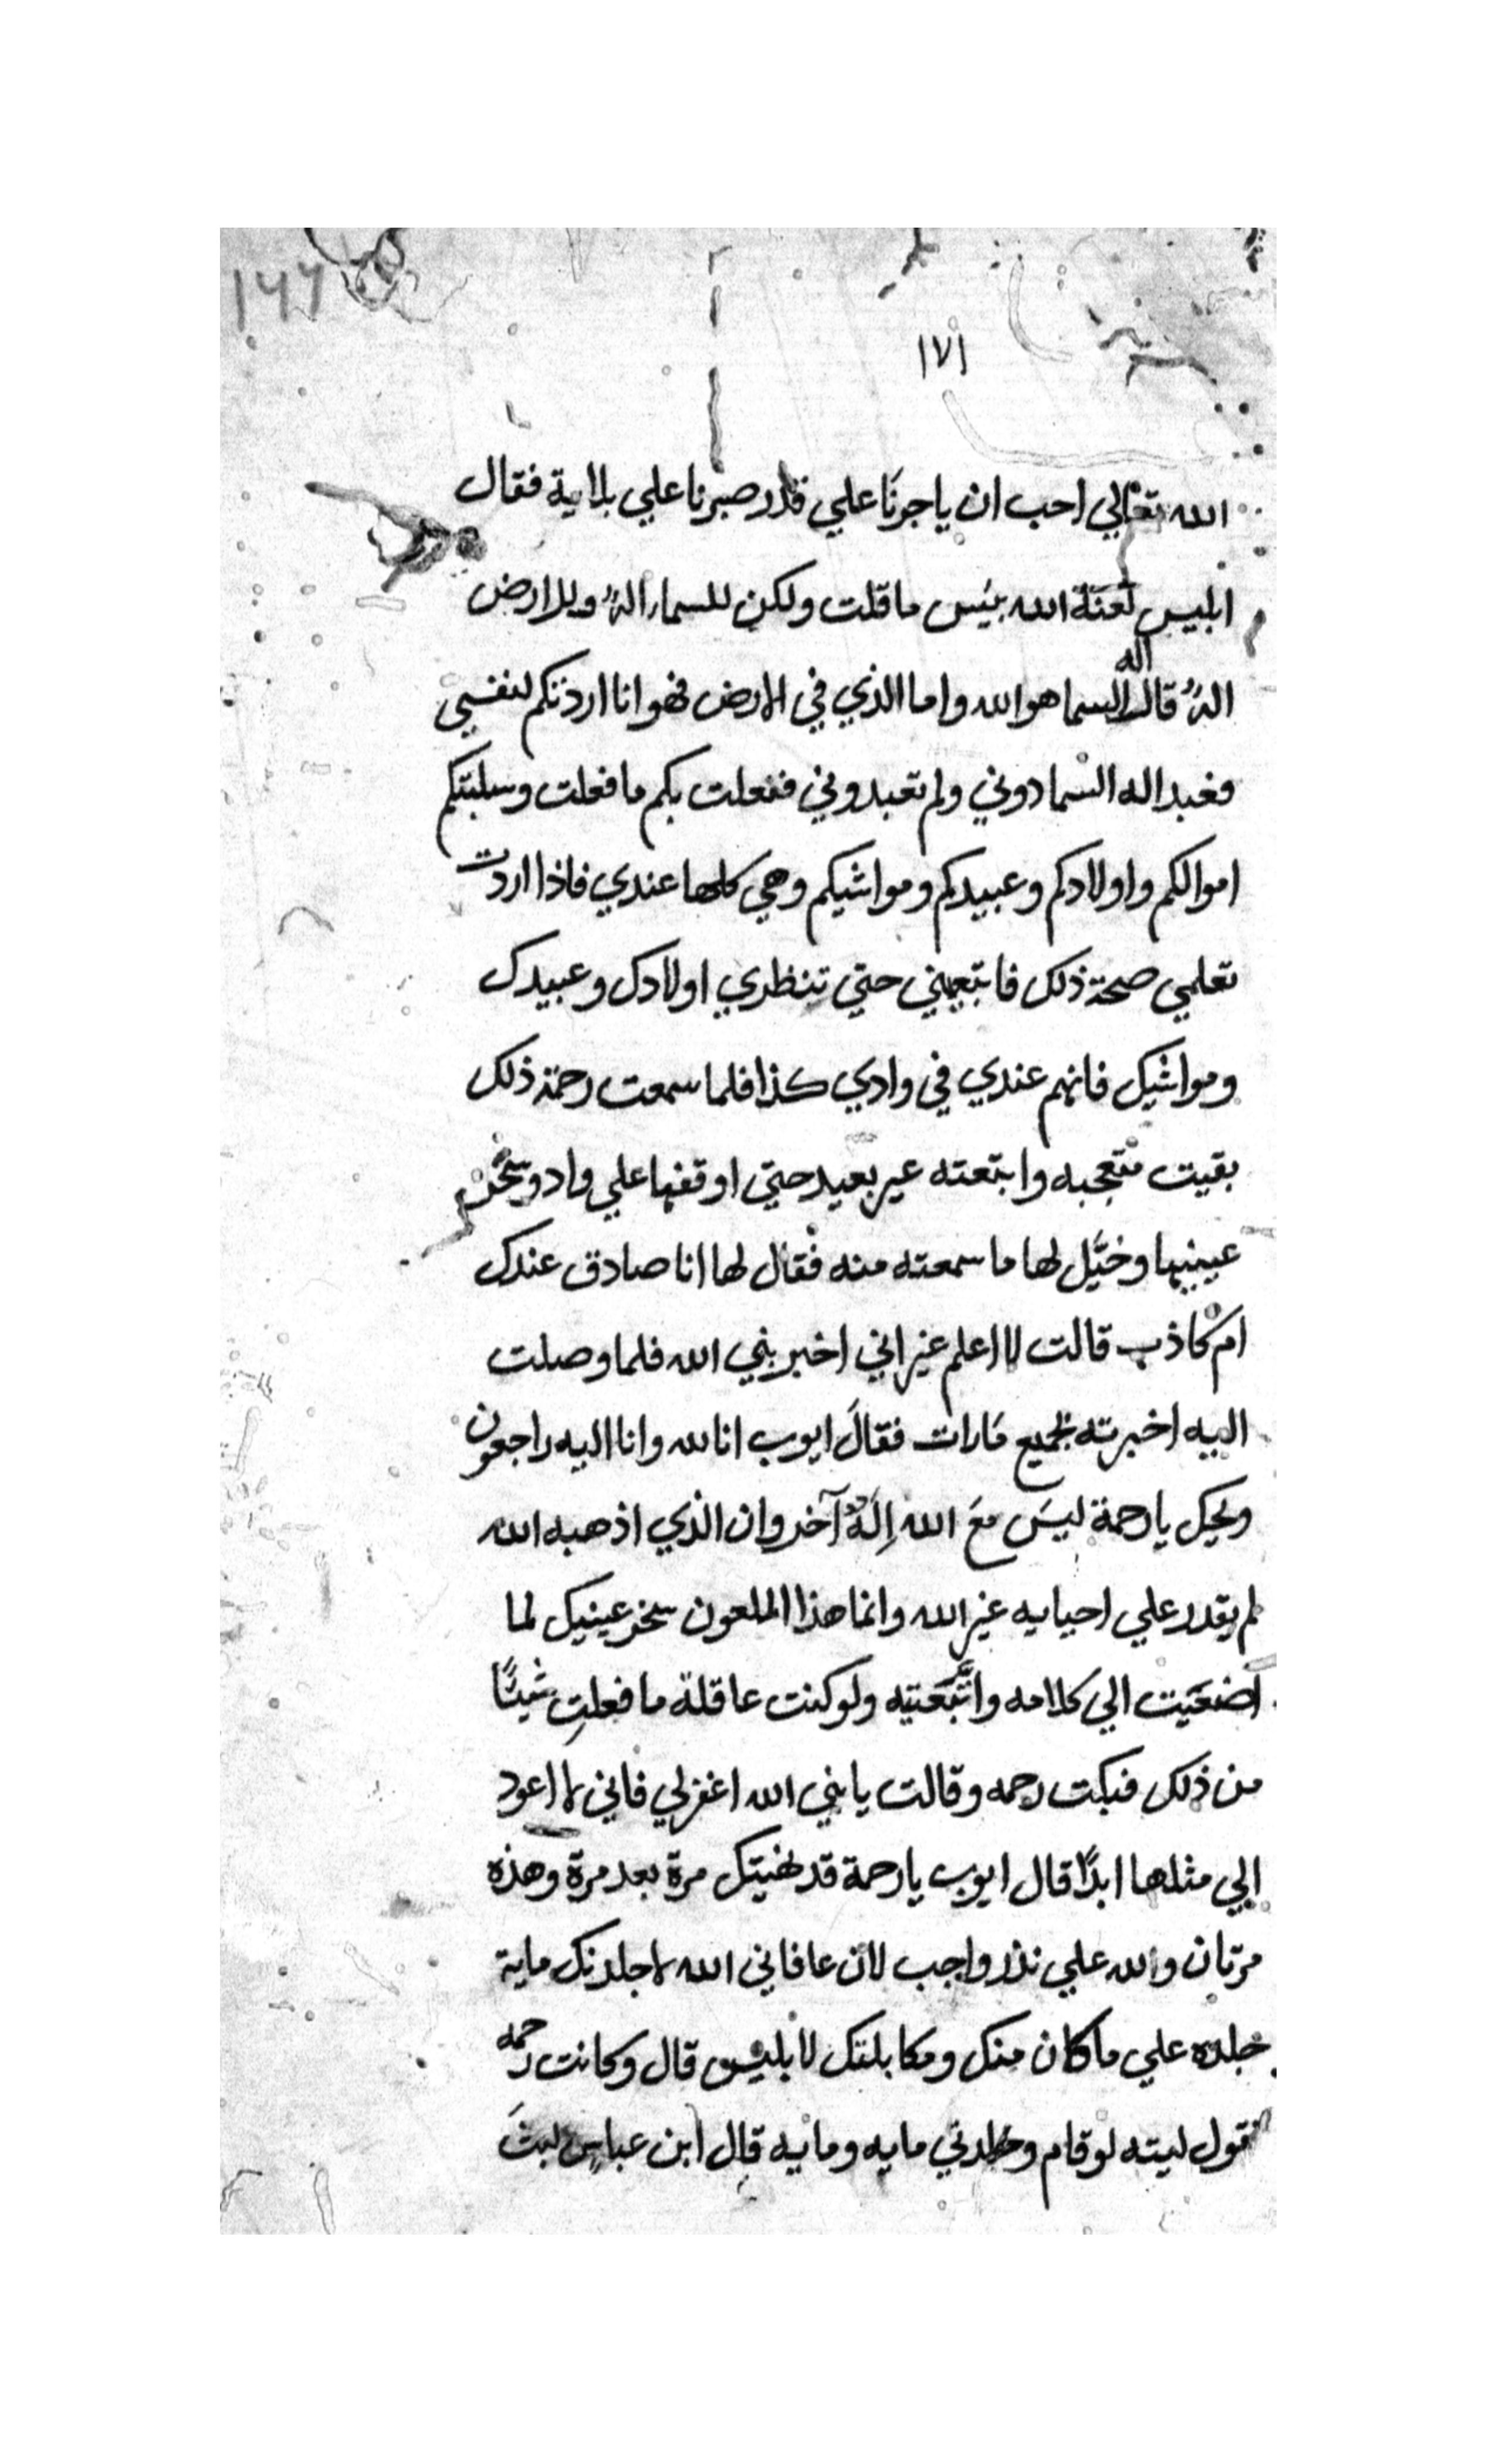 ١٧١
الله تعالي احب ان ياجرنا علي قدر صبرنا علي بلاية فقال
ابليس لعنة الله بئس ما قلت ولكن للسما اله وللارض
اله قال اله السما هو الله واما الذي في الارض فهو انا اردتكم لنفسي
فعبد اله السما دوني ولم تعبدوني ففعلت بكم ما فعلت وسلبتكم
اموالكم واولادكم وعبيدكم ومواشيكم وهي كلها عندي فاذا اردت
تعلمي صحة ذلك فاتبعيني حتي تنظري اولادك وعبيدك
ومواشيك فانهم عندي في وادي كذا فلما سمعت رحمة ذلك
بقيت متعجبه واتبعته غير بعيد حتي اوقفها علي واد وسخر
عينيها وخيّل لها ما سمعته منه فقال لها انا صادق عندك
ام كاذب قالت لا اعلم غير اني اخبر بني الله فلما وصلت
اليه اخبرته بجميع مارات فقالَ ايوب انا لله وانا اليه راجعون
ويحك يا رحمة ليسَ معَ الله اِلَهٌ آخر وان الذي اذهبه الله
لم يقدر علي احيايه غير الله وانما هذا الملعون سخر عينيك لما
اصغيت الي كلامه واتّبعتيه ولو كنت عاقلة ما فعلتِ شيئًا
من ذلك فبكت رحمه وقالت يا بني الله اغفر لي فاني لا اعود
الي مثلها ابدًا قال ايوب يا رحمة قد نهيتك مرة بعد مرة وهذه
مرتان والله علي نذر واجب لان عافاني الله لاجلدنك ماية
جلده علي ما كان منك ومكابلتك لابليس قال وكانت رحمه
تقول ليته لو قام وجلدني مايه ومايه قال ابن عباس لبثَ